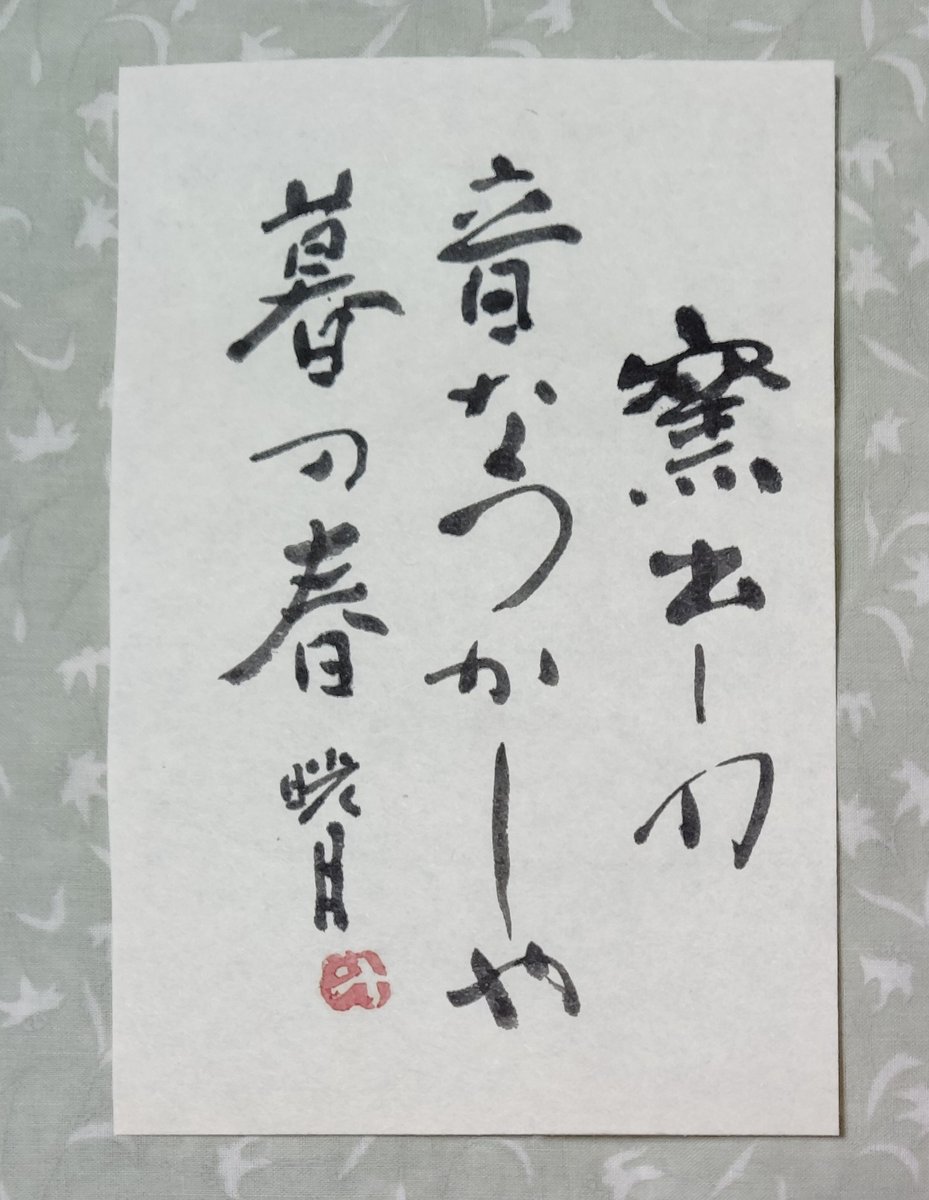 窯出しの
音なつかしや
暮の春